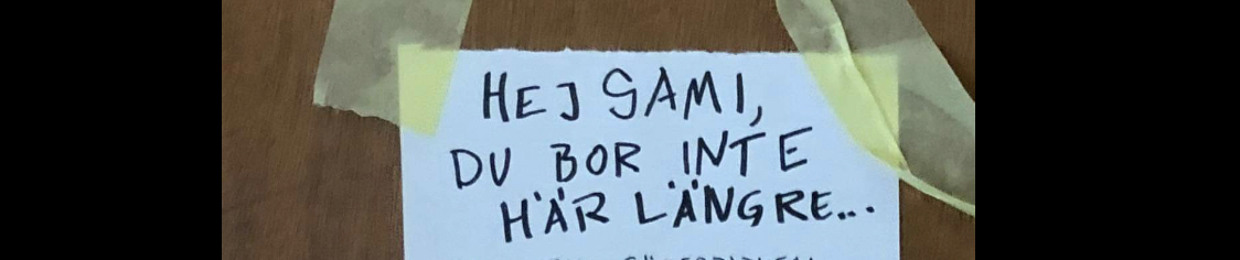 HEJ SAMI,
DU BOR INTE
HÄR LÄNGRE...